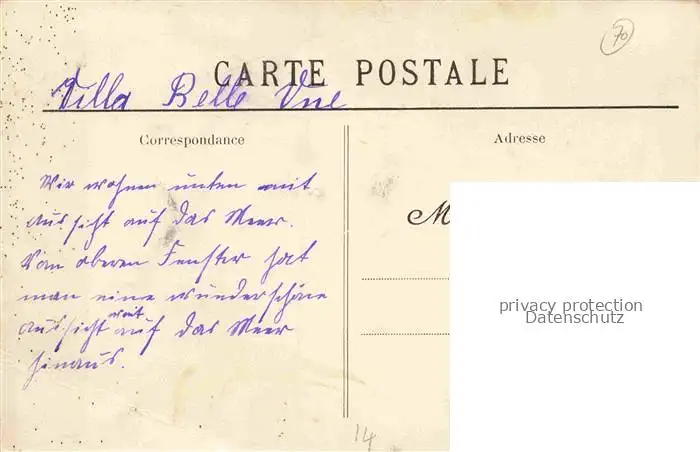 70
CARTE POSTALE
Villa Belle Vue
Correspondance
Adresse
Wir wohnen unten mit
Aussicht auf das Meer.
Vom oberen Fenster hat
man eine wunderschöne
Aussicht weit auf das Meer
hinaus.
M
privacy protection
Datenschutz
14